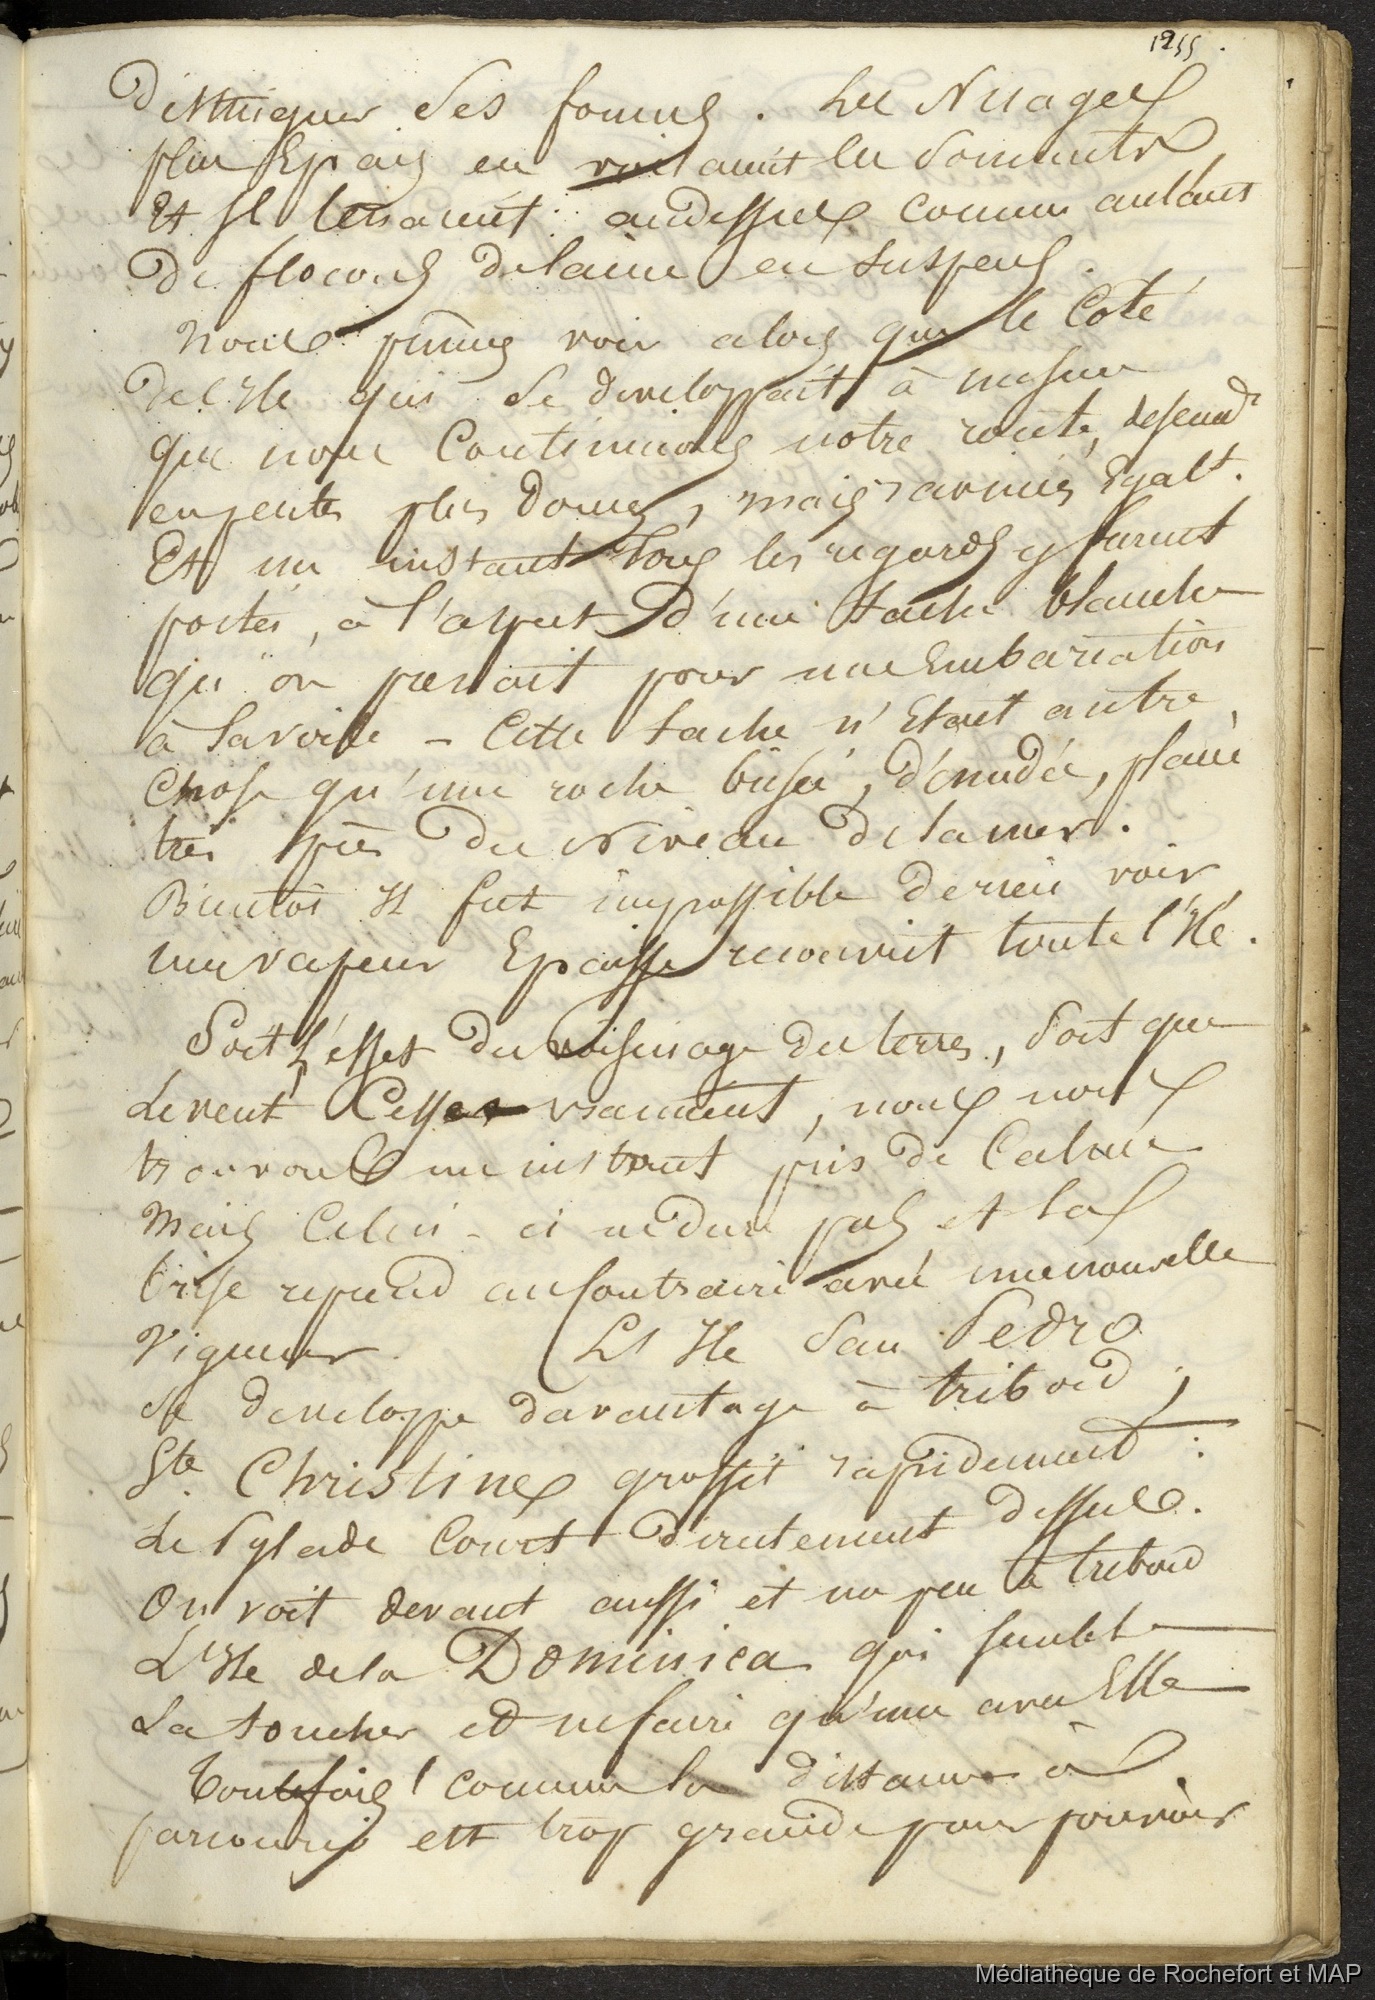 1255.
distinguer ses formes. Les Nuages
plus Epais en voilaient les sommets
Et Il laissaient audessus comme autant
De flocons delaine en suspens.
Nous pûmes voir alors que le Coté
Del'Ile qui se developpait à mesure
que nous Continuions notre route, descend
enpentes plus Douces, mais ravinées Egalt.
Et un instant Tous les regards y furent
portés, à l'aspect D'une tache blanche
qu'on prenait pour une Embarcation
à lavoile - Cette tache n'Etait autre
chose qu'une roche brisée, dénudée, placée
très près Du Niveau Delamer.
Bientôt Il fut impossible derien voir
une vapeur Epaisse recouvrit toute l'Ile.
Soit L'effet Du Voisinage Des terres, soit que
Levent Cesse vraiment, nous nous
trouvons un instant pris de Calme
Mais Celui-ci nedure pas et la
brise reprend au Contraire avec unenouvelle
Vigueur. L'Ile San Pedro
se developpe davantage à tribord;
Ste. Christine grossit rapidement:
Le Pylade Court directement dessus.
On voit devant aussi et un peu à tribord
L'Ile dela Dominica qui semble
La toucher et nefaire qu'une avec Elle
Toutefois comme la distance à
parcourir est trop grande pour pouvoir
Médiathèque de Rochefort et MAP